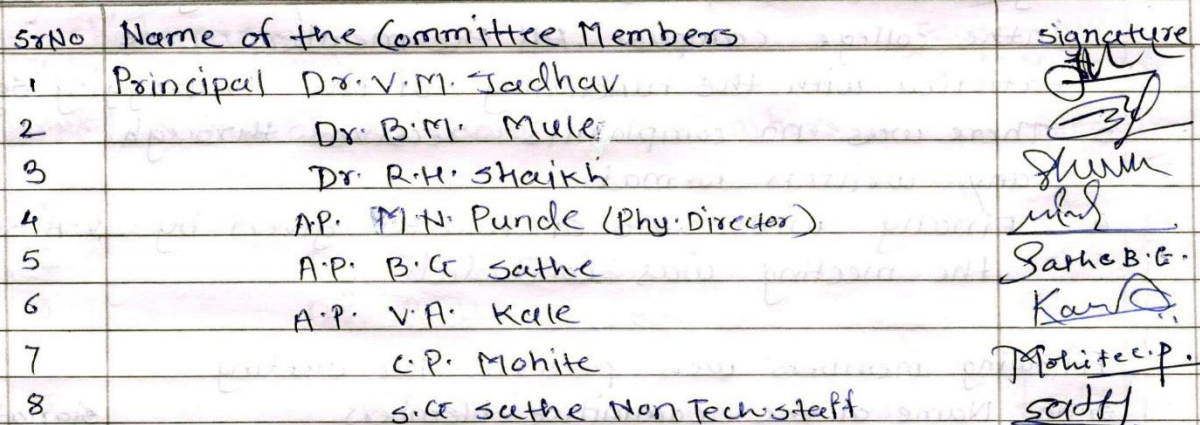 SrNo Name of the Committee Members signature
1 Principal Dr. V. M. Jadhav
2 Dr. B. M. Mule
3 Dr. R. H. Shaikh
4 A.P. M. N. Punde (Phy. Director)
5 A.P. B. G Sathe Sathe B. G.
6 A.P. V. A. Kale
7 C. P. Mohite Mohite c. p.
8 S. G Sathe Non Tech staff